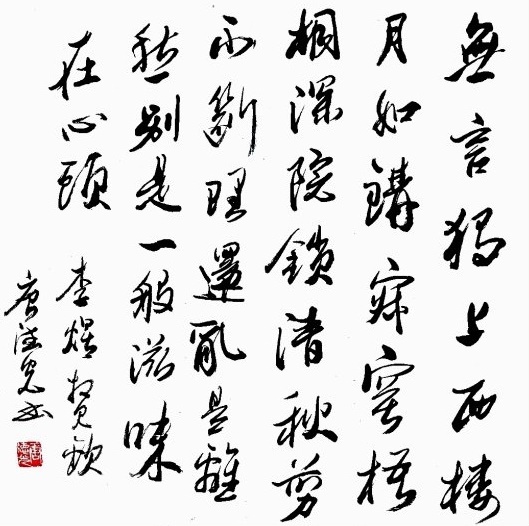 無言獨上西樓
月如鈎寂寞梧
桐深院鎖清秋剪
不斷理還亂是離
愁別是一般滋味
在心頭
李煜相見歡
唐書